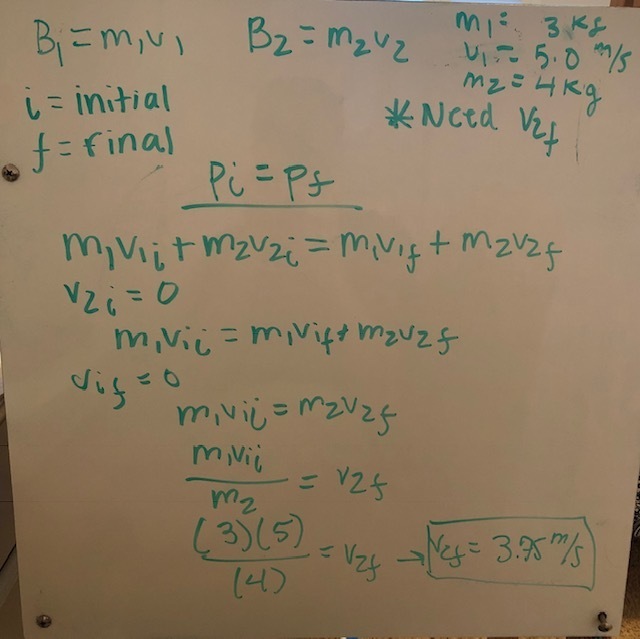 B₁ = m₁v₁
B₂ = m₂v₂
m₁ = 3 kg
v₁ = 5.0 m/s
m₂ = 4 kg
i = initial
f = final
* Need v₂f
pi = pf
m₁v₁i + m₂v₂i = m₁v₁f + m₂v₂f
v₂i = 0
m₁v₁i = m₁v₁f + m₂v₂f
v₁f = 0
m₁v₁i = m₂v₂f
m₁v₁i / m₂ = v₂f
(3)(5) / (4) = v₂f → v₂f = 3.75 m/s